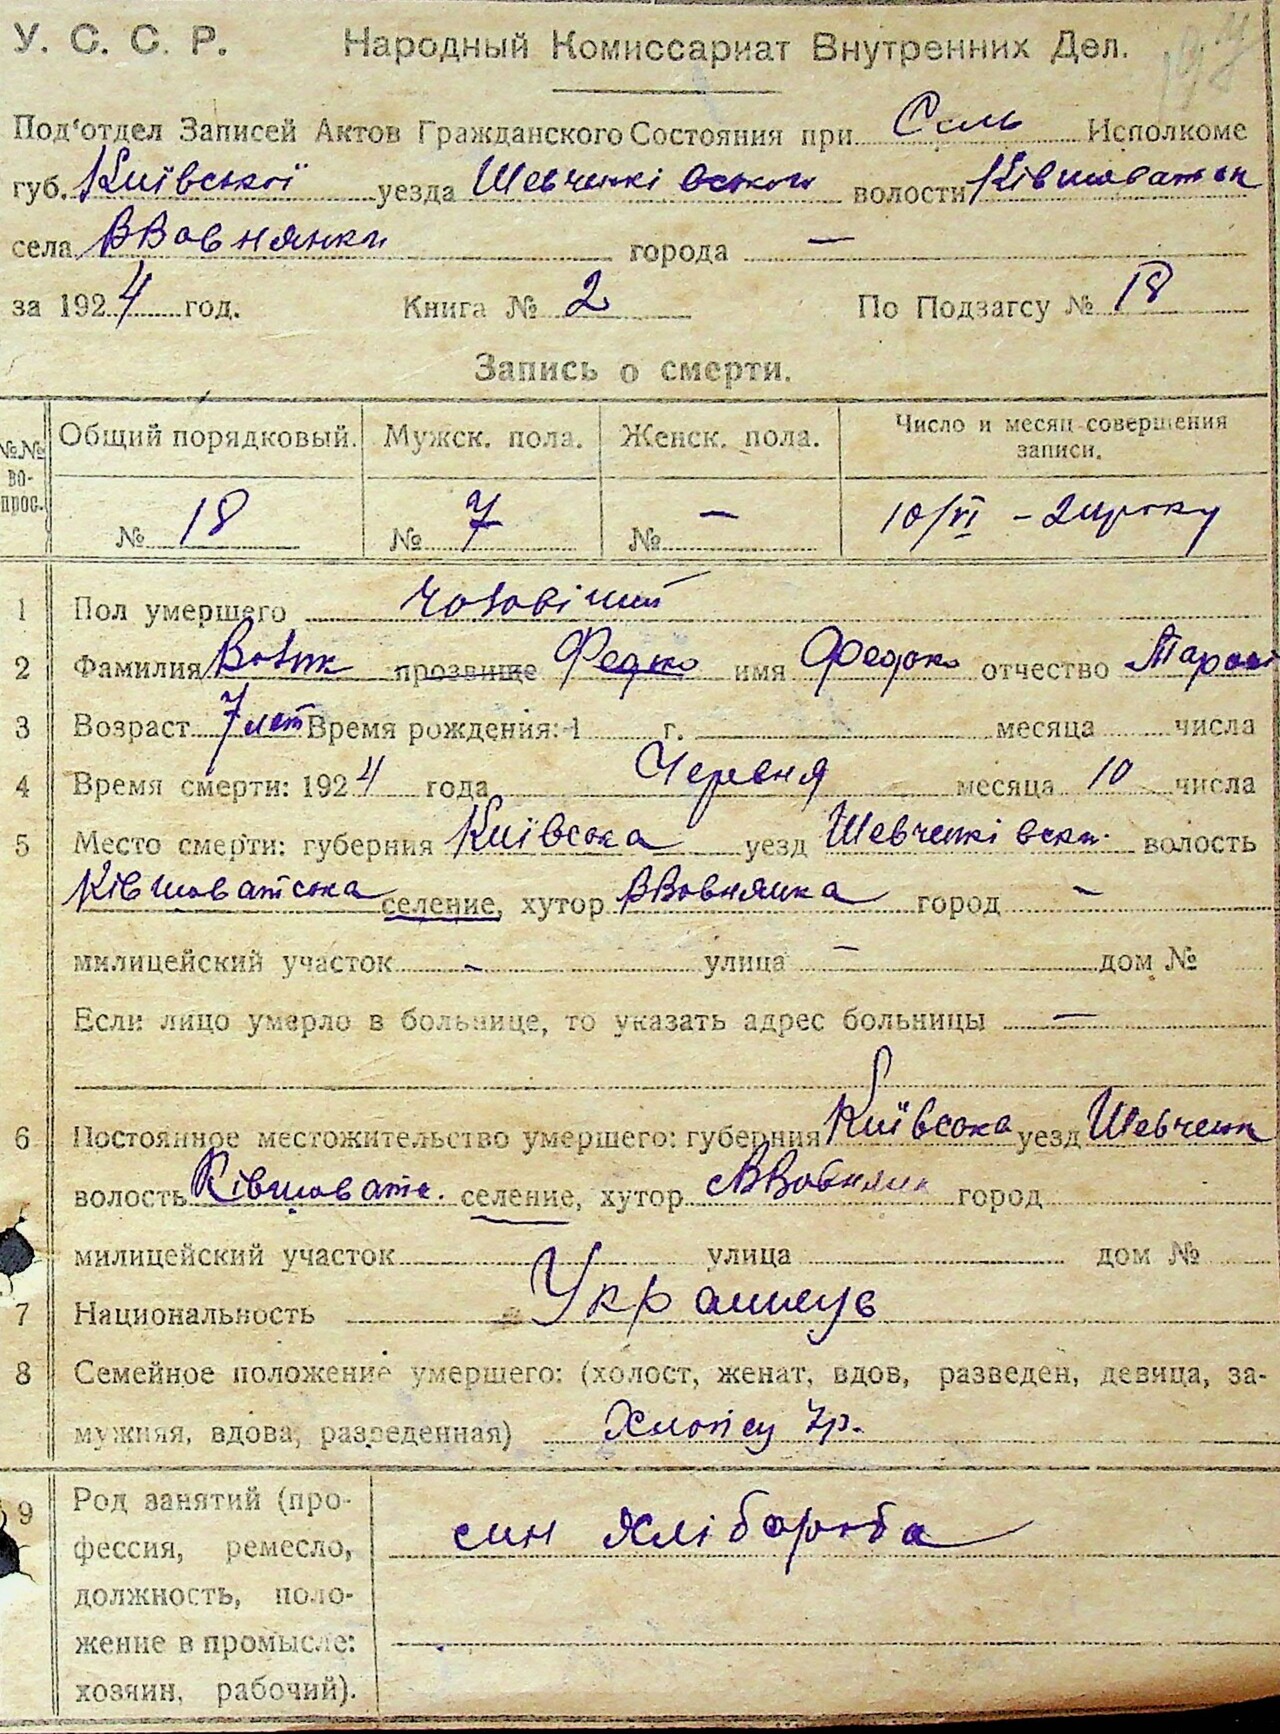 У. С. С. Р. Народный Комиссариат Внутренних Дел.
Под'отдел Записей Актов Гражданского Состояния при Сель Исполкоме
губ. Київської уезда Шевченківського волости Ківшоватськ
села ВВовнянки города —
за 1924 год. Книга № 2 По Подзагсу № 18
Запись о смерти.
№№ во-прос. Общий порядковый. Мужск. пола. Женск. пола. Число и месяц совершения записи.
№ 18 № 7 № — 10/VI –
1 Пол умершего чоловічий
2 Фамилия прозвище Федько имя Федько отчество
3 Возраст 7 лет Время рождения: 1 г. месяца числа
4 Время смерти: 1924 года Червня месяца 10 числа
5 Место смерти: губерния Київська уезд Шевченківськ. волость
Ківшоватська селение, хутор ВВовнянка город —
милицейский участок — улица — дом №
Если лицо умерло в больнице, то указать адрес больницы —
6 Постоянное местожительство умершего: губерния Київська уезд Шевченк
волость Ківшоватс. селение, хутор ВВовнянк город
милицейский участок улица дом №
7 Национальность Українець
8 Семейное положение умершего: (холост, женат, вдов, разведен, девица, за-
мужняя, вдова, разведенная) Хлопець 7р.
9 Род занятий (про-
фессия, ремесло, син хлібороба
должность, поло-
жение в промысле:
хозяин, рабочий).